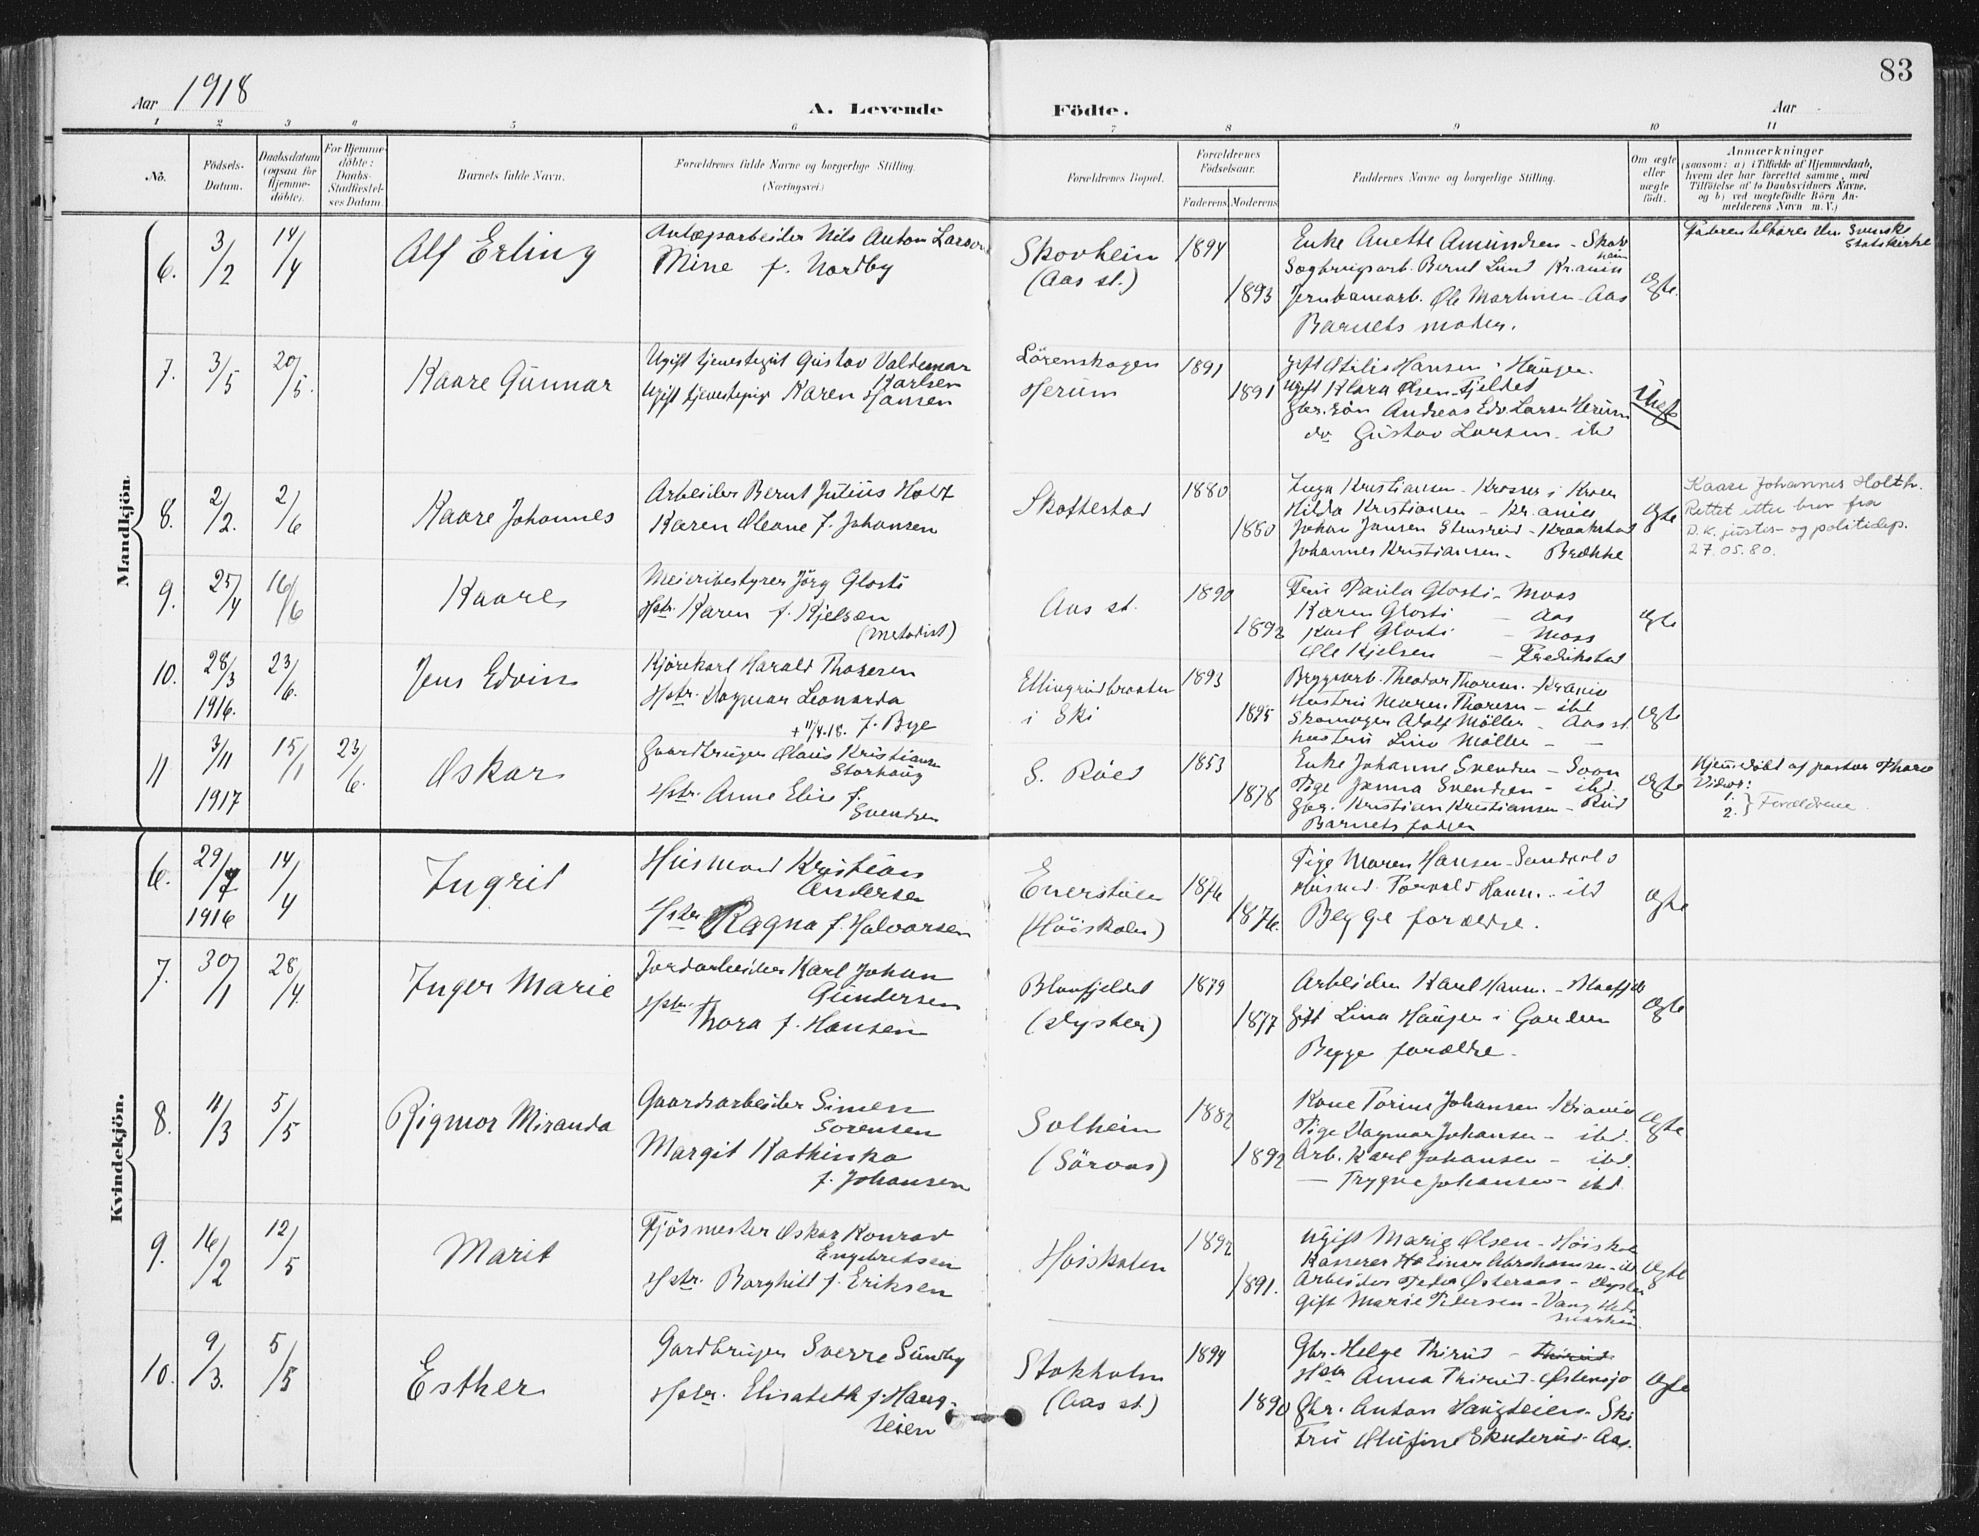 83
Aar 1918
A. Levende
Födte.
Aar
1 2 3 4 5 6 7 8 9 10 11
No.
Födsels-
Datum.
Daabsdatum
(ogsaa for
Hjemme-
döbte).
For Hjemme-
döbte:
Daabs-
Stadfæstel-
ses Datum.
Barnets fulde Navn.
Forældrenes fulde Navne og borgerlige Stilling.
(Næringsvei)
Forældrenes Bopæl.
Forældrenes
Födselsaar.
Faderens Moderens
Faddernes Navne og borgerlige Stilling.
Om ægte
eller
uægte
födt.
Anmærkninger
(saasom: a) i Tilfælde af Hjemmedaab,
hvem der har forrettet samme, med
Tilföielse af to Daabsvidners Navne.
og b) ved uægtefödte Börn An-
melderens Navn m. V.)
Mandkjön.
6. 3/2 14/4 Alf Erling
Anlægsarbeider Nils Anton Larsen
Mine f. Nordby
Skovheim
(Aas st.)
1894
1893
Enke Anette Amundsen - Skov
heim
Bernt Lund Kr.ania
Jernbanearb. Ole Martinsen - Aas
Barnets moder.
Ægte.
Faderen tilhører den Svenske
Statskirke
7. 3/5 20/5. Kaare Gunnar
Ugift tjenestegut Gustav Valdemar
Karlsen
Ugift tjenestepige Karen Hansen
Lörenskogen
Herum
1891
1891
Gift Otilie Hansen i Haugen.
Ugift Klara Olsen Fjeldet
Gbr. søn Andreas Edv Larsen Herum
do Gustav Larsen. ibd
Uægte
8. 2/2. 2/6 Kaare Johannes
Arbeider Bernt Julius Holt
Karen Oleane f. Johansen
Skottestad
1880
1880
Inga Kristiansen - Krosser i Kroer
Hilda Kristiansen - Kr.ania
Johan Jansen - Kraakstad
Johannes Kristiansen - Brække
Ægte
Kaare Johannes Holth.
Rettet etter brev fra
D.K. justis- og politidep.
27.05.80.
9. 25/4 16/6 Kaare
Meieribestyrer Jörg Glosti
Hstr. Karen f. Kjelsen
(Metodist)
Aas st.
1890
1892
Fru Paula Glosti - Moss
Karen Glosti - Aas
Karl Glosti - Moss
Ole Kjelsen - Fredrikstad
Ægte
10. 28/3 1916. 23/6. Jens Edvin
Kjørekarl Harald Thoresen
Hstr. Dagmar Leonarda
+ 11/4-18. f. Bye
Ellingrudbraaten
i Ski
1893
1895
Bryggearb. Theodor Thoresen. Kr.ania
Hustru Maren Thoresen - ibd
Skomager Adolf Møller - Aas st.
Hustru Lina Møller - —
Ægte
11 3/11 1917 15/1 23/6. Oskar
Gaardbruger Olaus Kristiansen
Storhaug
Hstr. Anne Elise f.
Svendsen
S. Röed
1853
1878
Enke Johanne Svendsen - Soon
Pige Janna Svendsen - ibd.
Gbr. Kristian Kristiansen - Rud
Barnets fader
Ægte
Hjemmedøbt af pastor Thore
Vidner:
1.
2. } Forældrene
Kvindekjön.
6. 29/7 1916 14/4 Ingrid
Husmand Kristian
Andersen
Hstr. Ragna f. Halvorsen
Enerstuen
(Höiskolen)
1876
1876.
Pige Maren Hansen -
Husmd. Torvald Hansen. ibd
Begge forældre.
Ægte
7. 30/1 28/4. Inger Marie
Jordarbeider Karl Johan
Gundersen
Hstr. Thora f. Hansen
Blaafjeldet
(Dyster)
1879
1877
Arbeider Karl Hansen - Blaafjeld
Gift Lina Haugen i Garden
Begge forældre.
Ægte
8. 11/3 5/5 Rigmor Miranda
Gaardsarbeider Simen
Sorensen
Margit Kathinka
f. Johansen
Solheim
(Söraas)
1882
1892
Kone Torine Johansen - Kr.ania
Pige Dagmar Johansen - ibd.
Arb. Karl Johansen - ibd.
— Trygve Johansen - ibd
Ægte
9. 16/2 12/5 Marit
Fjösmester Oskar Konrad
Engebretsen
Hstr. Borghild f. Eriksen
Höiskolen
1892
1891.
Ugift Marie Olsen - Höiskol
Kasserer H. Einar Abrahamsen - ibd
Arbeider Peder Østeraas - Dyster
Gift Marie Pedersen - Vang Hede
marken
Ægte
10. 9/3. 5/5 Esther
Gardbruger Sverre Sundby
Hstr. Elisabeth f. Haug-
teien
Stokholm
(Aas st.)
1894
1890
Gbr. Helge Thirud - Thirud
Hstr Anna Thirud - Østensjo
Gbr. Anton Haugteien - Ski
Fru Olufine Skuterud - Aas.
Ægte